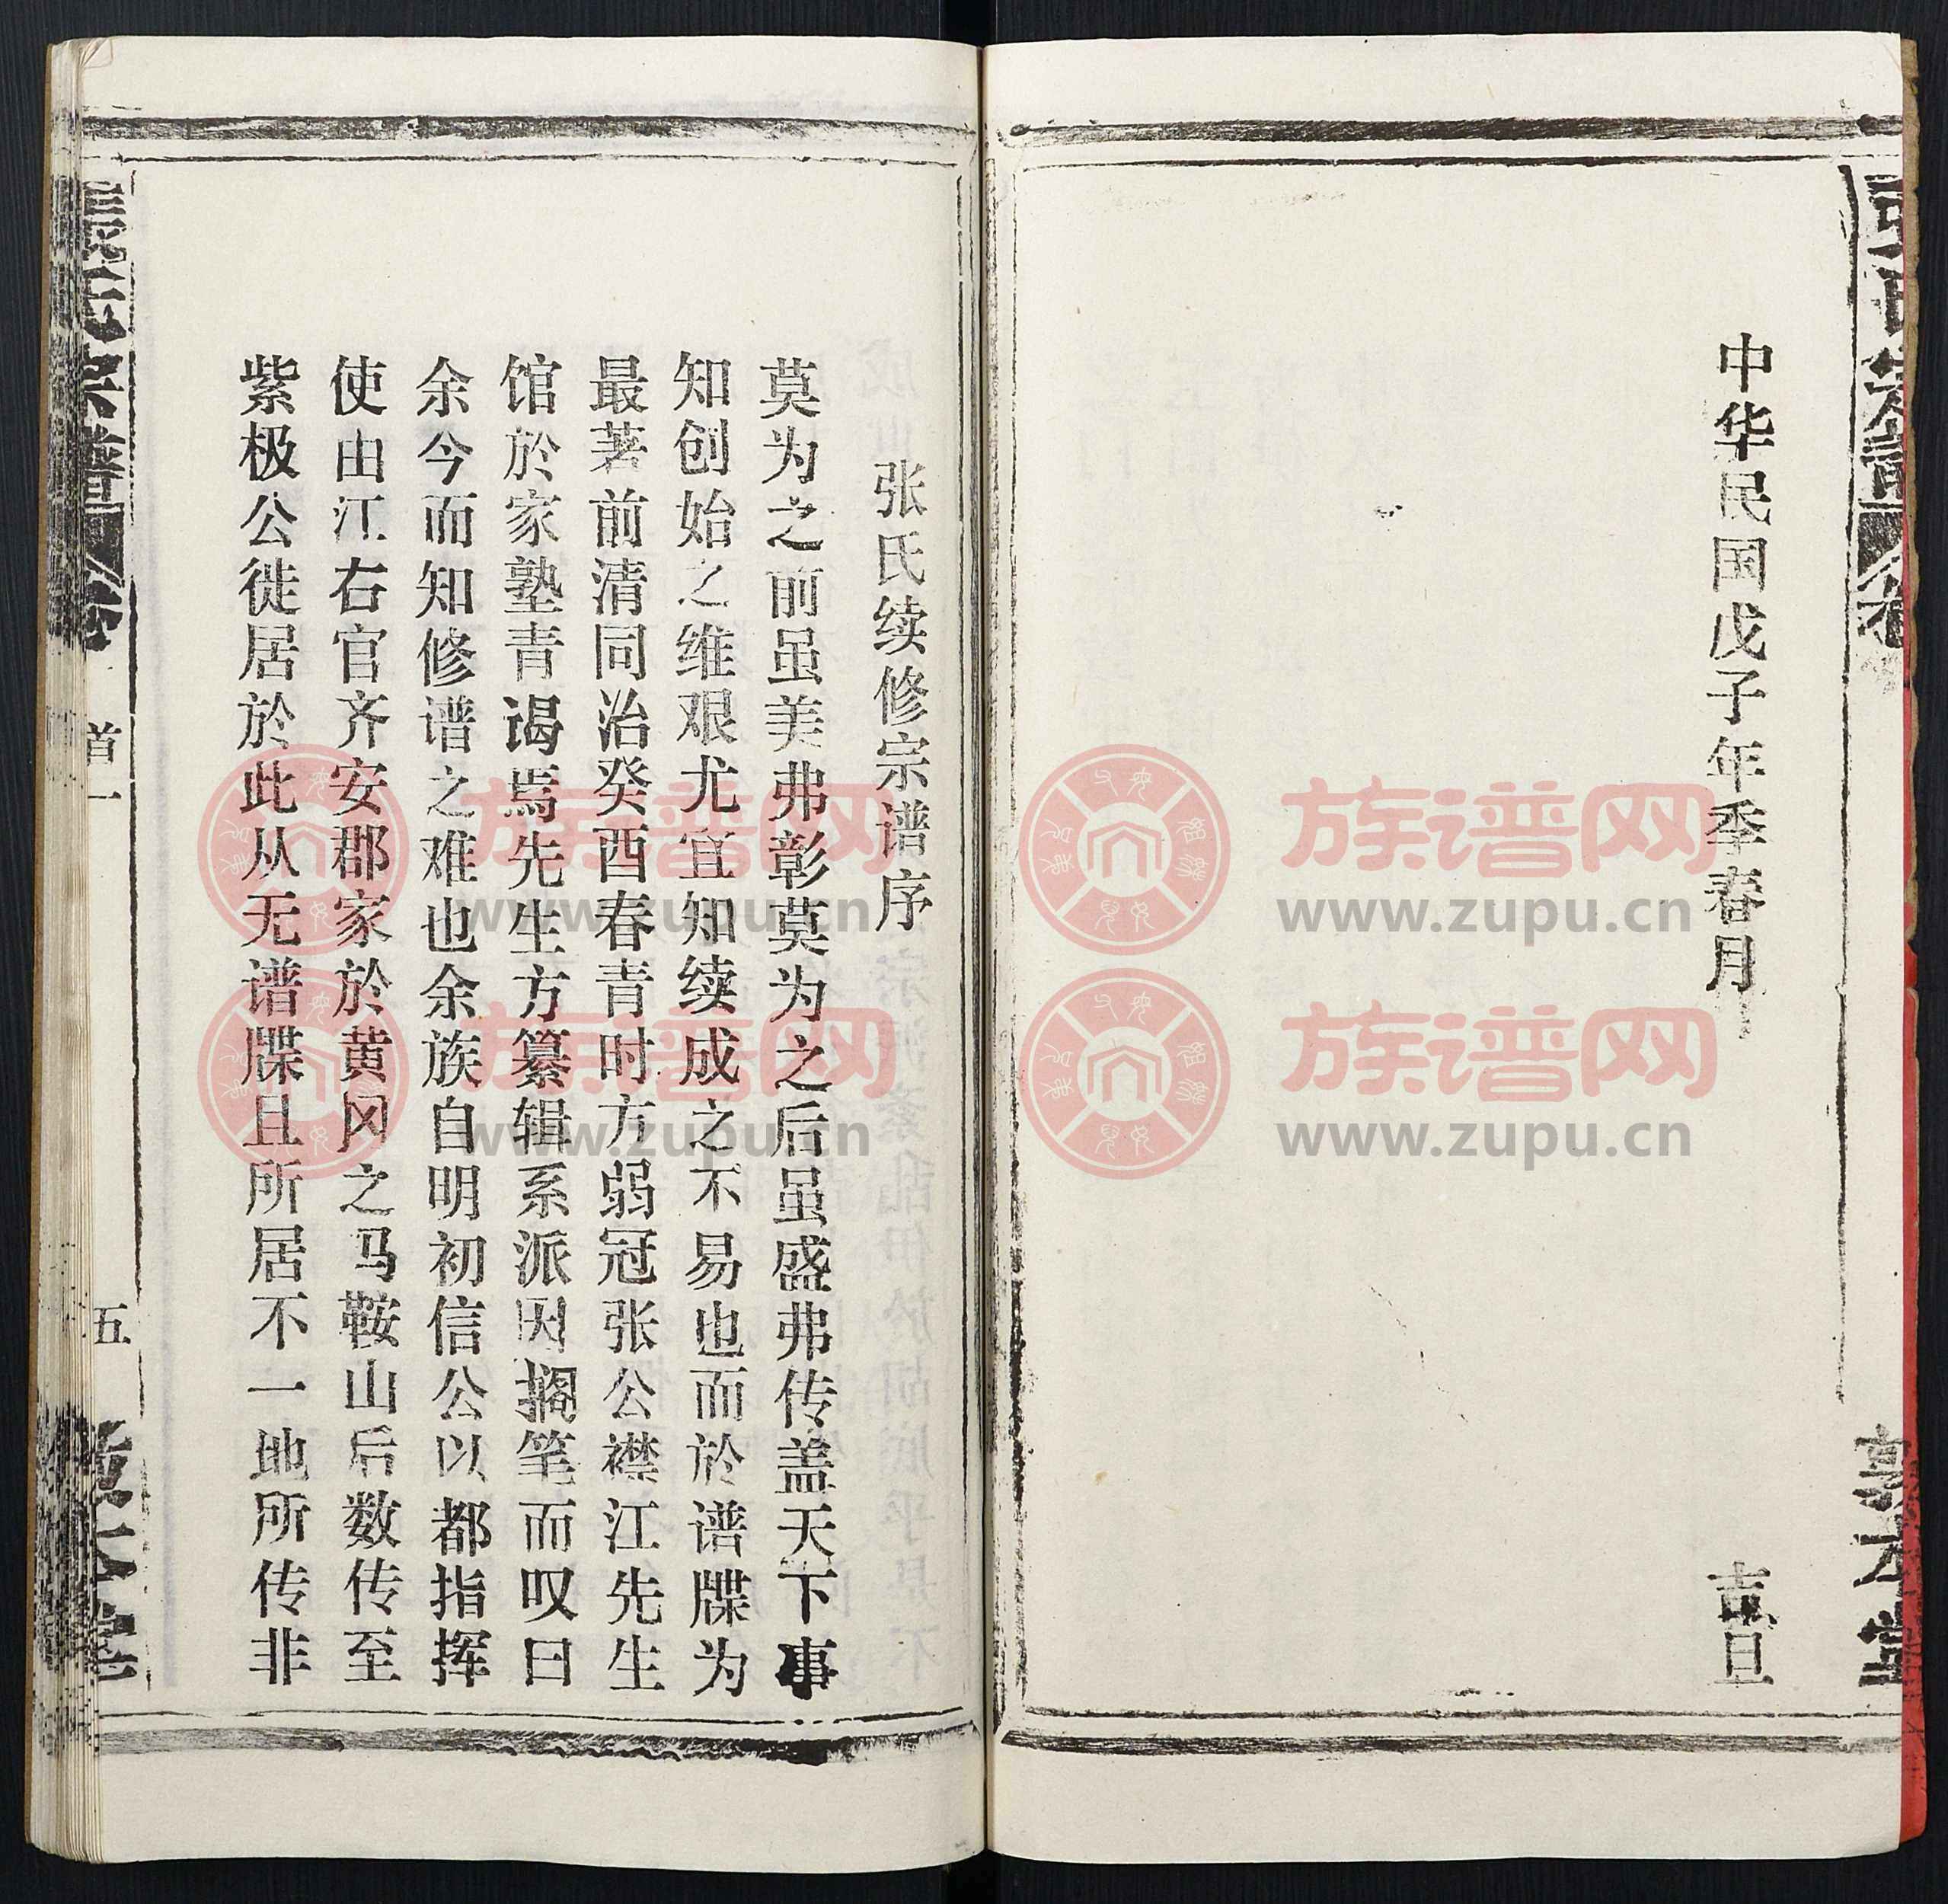 中华民国戊子年季春月 吉旦
张氏续修宗谱序
莫为之前虽美弗彰莫为之后虽盛弗传盖天下事
知创始之维艰尤宜知续成之不易也而於谱牒为
最著前清同治癸酉春青时方弱冠张公襟江先生
馆於家塾青谒焉先生方纂辑系派因搁笔而叹曰
余今而知修谱之难也余族自明初信公以都指挥
使由江右官齐安郡家於黄冈之马鞍山后数传至
紫极公徙居於此从无谱牒且所居不一地所传非
首一
五
族谱网
www.zupu.cn
族谱网
www.zupu.cn
族谱网
www.zupu.cn
族谱网
www.zupu.cn